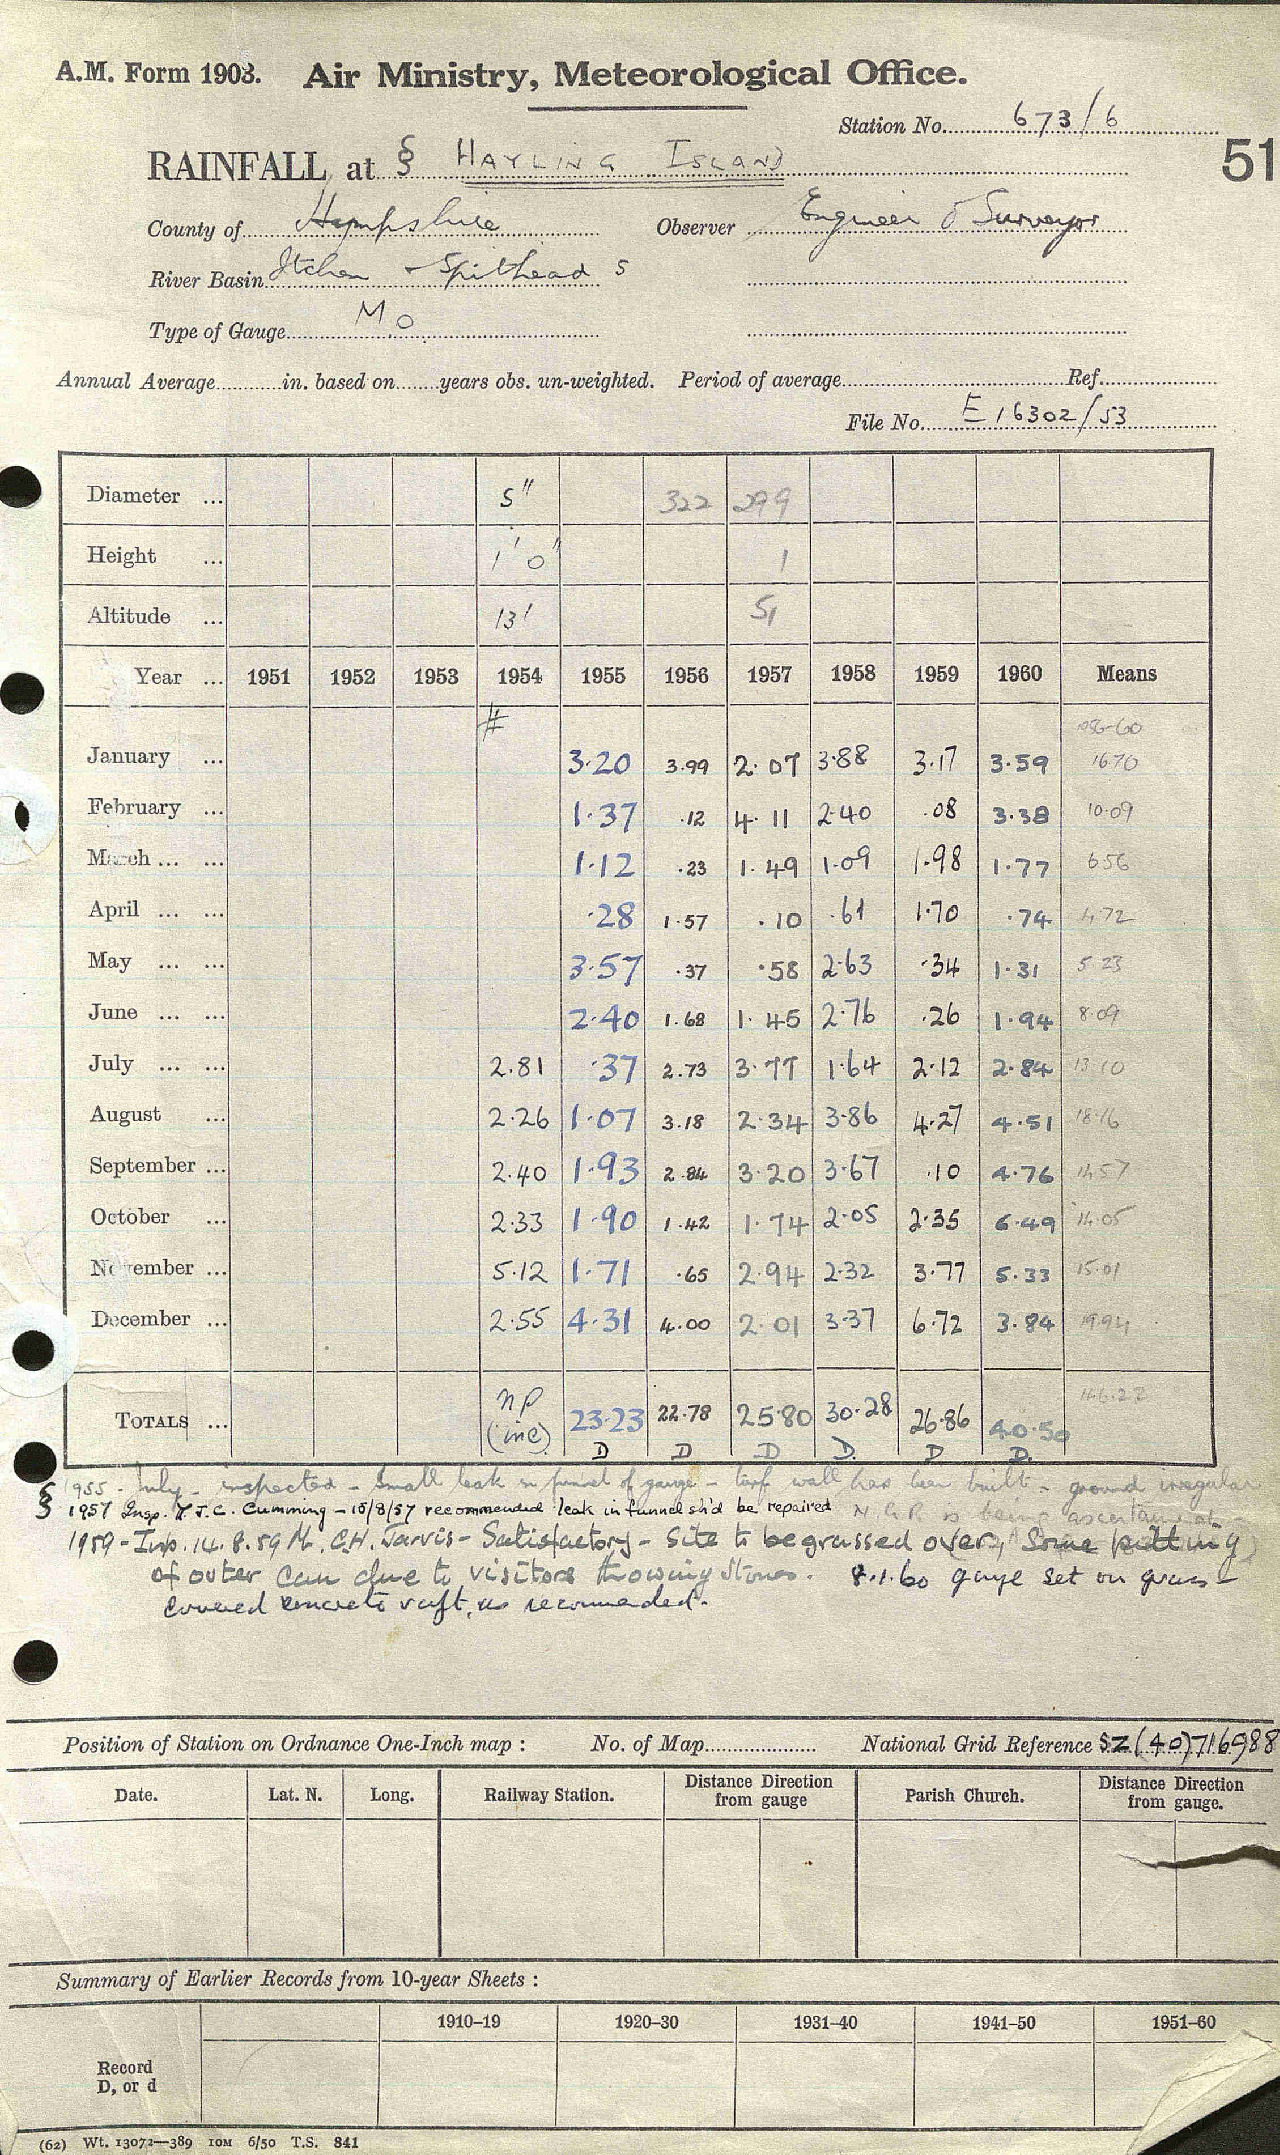 A.M. Form 1903. Air Ministry, Meteorological Office.
Station No. 673/6
51
RAINFALL at § HAYLING ISLAND
County of Hampshire Observer Engineer & Surveyor
River Basin Itchen - Spithead S
Type of Gauge M.O.
Annual Average in. based on years obs. un-weighted. Period of average Ref.
File No. E 16302/53
Diameter ... 5" 322 299
Height ... 1' 0" 1
Altitude ... 13' 51
Year ... 1951 1952 1953 1954 1955 1956 1957 1958 1959 1960 Means
# 56-60
January ... 3.20 3.99 2.07 3.88 3.17 3.59 16.70
February ... 1.37 .12 4.11 2.40 .08 3.38 10.09
March ... ... 1.12 .23 1.49 1.09 1.98 1.77 6.56
April ... ... .28 1.57 .10 .61 1.70 .74 4.72
May ... ... 3.57 .37 .58 2.63 .34 1.31 5.23
June ... ... 2.40 1.68 1.45 2.76 .26 1.94 8.09
July ... ... 2.81 .37 2.73 3.77 1.64 2.12 2.84 13.10
August ... 2.26 1.07 3.18 2.34 3.86 4.27 4.51 18.16
September ... 2.40 1.93 2.84 3.20 3.67 .10 4.76 14.57
October ... 2.33 1.90 1.42 1.74 2.05 2.35 6.49 14.05
November ... 5.12 1.71 .65 2.94 2.32 3.77 5.33 15.01
December ... 2.55 4.31 4.00 2.01 3.37 6.72 3.84 19.94
TOTALS ... np (inc) 23.23 22.78 25.80 30.28 26.86 40.50 146.22
D D D D. D D.
1955 - July - inspected - Small leak in funnel of gauge - turf wall has been built - ground irregular
§ 1957 Insp. J.C. Cumming - 15/8/57 recommended leak in funnel sh'd be repaired N.G.R is being ascertained
1959 - Insp. 14.8.59 Mr. C.H. Jarvis - Satisfactory - Site to be grassed over, Some pitting
of outer can due to visitors throwing stones. 8.1.60 gauge set on grass
covered concrete raft, as recommended.
Position of Station on Ordnance One-Inch map : No. of Map National Grid Reference SZ(40)716988
Date. Lat. N. Long. Railway Station. Distance Direction from gauge Parish Church. Distance Direction from gauge.
Summary of Earlier Records from 10-year Sheets :
1910-19 1920-30 1931-40 1941-50 1951-60
Record
D, or d
(62) Wt. 13072—389 10M 6/50 T.S. 841